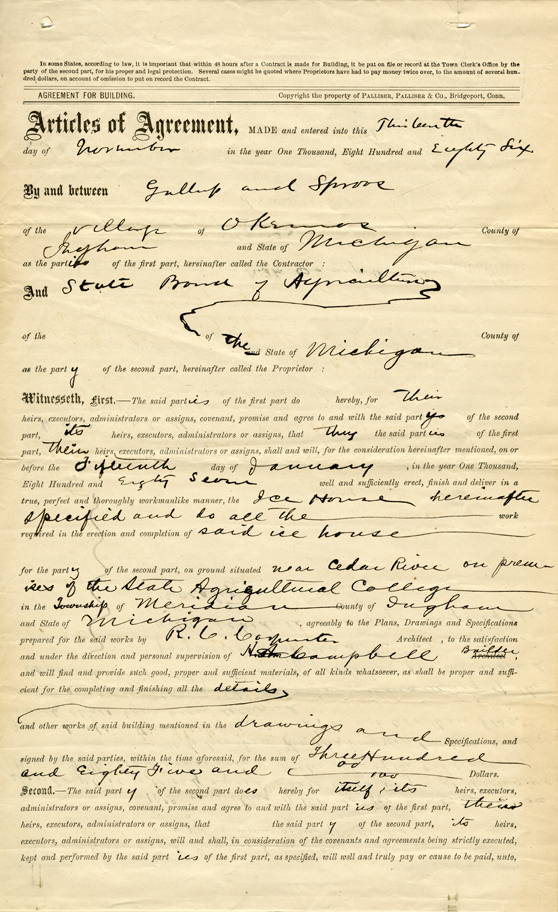 In some States, according to law, it is important that within 48 hours after a Contract is made for Building, it be put on file or record at the Town Clerk's Office by the
party of the second part, for his proper and legal protection. Several cases might be quoted where Proprietors have had to pay money twice over, to the amount of several hun-
dred dollars, on account of omission to put on record the Contract.
AGREEMENT FOR BUILDING. Copyright the property of PALLISER, PALLISER & CO., Bridgeport, Conn.
Articles of Agreement, MADE and entered into this Thirteenth
day of November in the year One Thousand, Eight Hundred and Eighty Six
By and between Gallup and Spross
of the village of Okemos County of
Ingham and State of Michigan
as the parties of the first part, hereinafter called the Contractor :
And State Board of Agriculture
of the of the County of
and State of Michigan
as the party of the second part, hereinafter called the Proprietor :
Witnesseth, First.—The said parties of the first part do hereby, for their
heirs, executors, administrators or assigns, covenant, promise and agree to and with the said party of the second
part, its heirs, executors, administrators or assigns, that they the said parties of the first
part, their heirs, executors, administrators or assigns, shall and will, for the consideration hereinafter mentioned, on or
before the Fifteenth day of January, in the year One Thousand,
Eight Hundred and Eighty Seven well and sufficiently erect, finish and deliver in a
true, perfect and thoroughly workmanlike manner, the Ice House hereinafter
specified and to do all the work
required in the erection and completion of said ice house
for the party of the second part, on ground situated near Cedar River on prem-
ises of the State Agricultural College
in the Township of Meridian County of Ingham
and State of Michigan, agreeably to the Plans, Drawings and Specifications
prepared for the said works by R. C. Carpenter Architect, to the satisfaction
and under the direction and personal supervision of Campbell Builder Architect,
and will find and provide such good, proper and sufficient materials, of all kinds whatsoever, as shall be proper and suffi-
cient for the completing and finishing all the details
and other works of said building mentioned in the drawings and Specifications, and
signed by the said parties, within the time aforesaid, for the sum of Three Hundred
and Eighty Five and 00/100 Dollars.
Second.—The said party of the second part does hereby for itself, its heirs, executors,
administrators or assigns, covenant, promise and agree to and with the said parties of the first part, theirs
heirs, executors, administrators or assigns, that the said party of the second part, its heirs,
executors, administrators or assigns, will and shall, in consideration of the covenants and agreements being strictly executed,
kept and performed by the said parties of the first part, as specified, will well and truly pay or cause to be paid, unto,